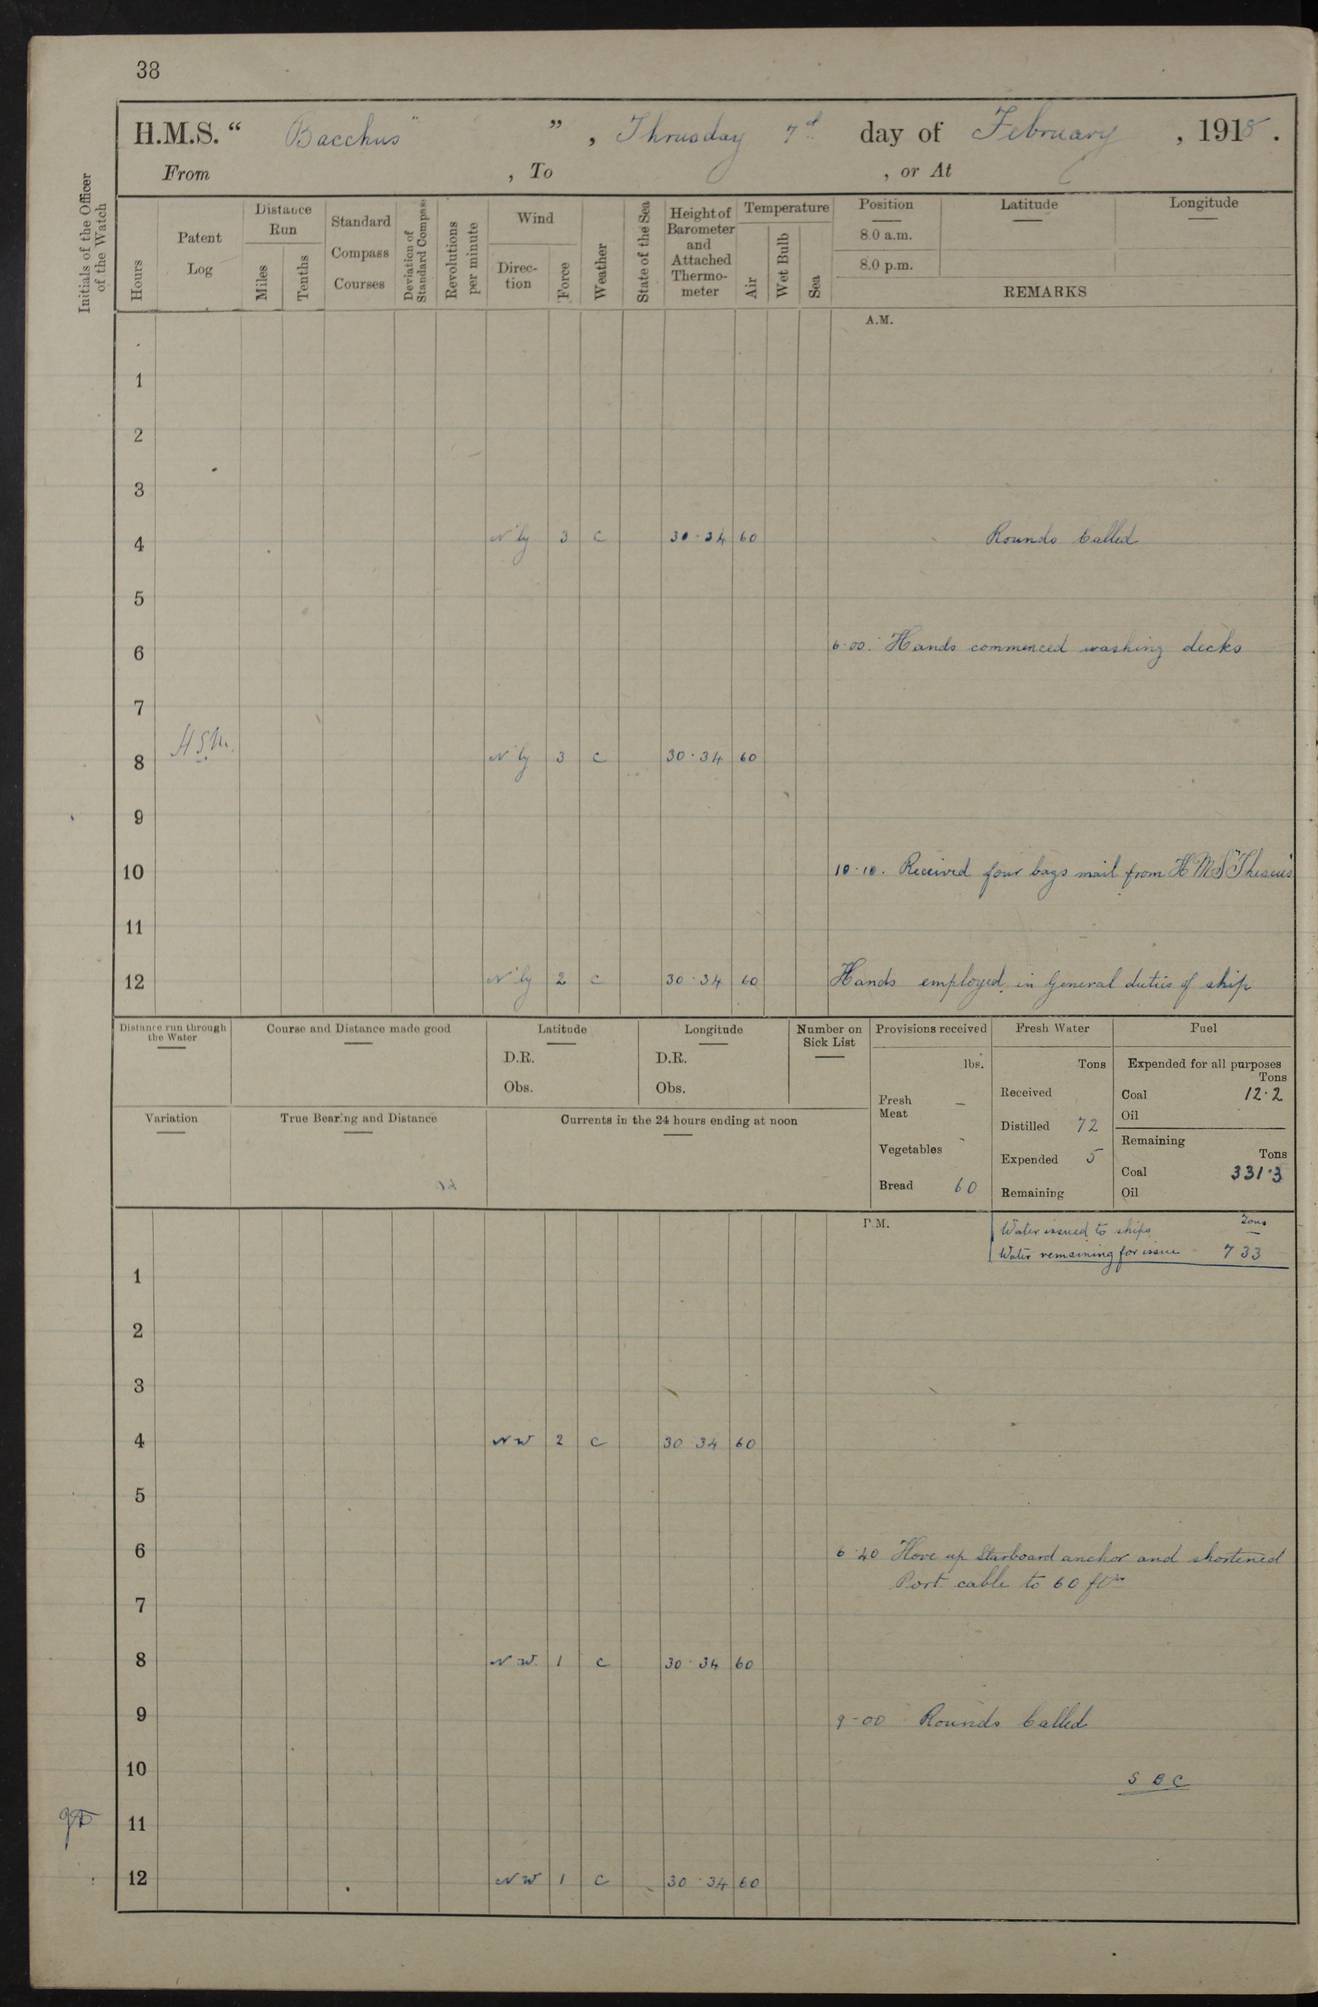 38
H.M.S. “ Bacchus" ” , Thrusday 7th day of February , 1918 .
From , To , or At
Initials of the Officer of the Watch
Hours
Patent Log
Distance Run
Miles
Tenths
Standard Compass Courses
Deviation of Standard Compass
Revolutions per minute
Wind
Direc-tion
Force
Weather
State of the Sea
Height of Barometer and Attached Thermo-meter
Temperature
Air
Wet Bulb
Sea
Position
8.0 a.m.
8.0 p.m.
Latitude
Longitude
REMARKS
A.M.
1
2
3
4 N'ly 3 c 30·34 60 Rounds Called
5
6 6·00. Hands commenced washing decks
7
8 N'ly 3 c 30·34 60
9
10 10·10. Received four bags mail from H M S "Theseus
11
12 N'ly 2 c 30·34 60 Hands employed in General duties of ship
Distance run through the Water
Course and Distance made good
Latitude
D.R.
Obs.
Longitude
D.R.
Obs.
Number on Sick List
Provisions received
lbs.
Fresh Meat —
Vegetables
Bread 60
Fresh Water
Tons
Received
Distilled 72
Expended 5
Remaining
Fuel
Expended for all purposes
Tons
Coal 12·2
Oil
Remaining
Tons
Coal 331·3
Oil
Variation
True Bearing and Distance
Currents in the 24 hours ending at noon
P.M.
Tons
Water issued to ships —
Water remaining for issue 733
1
2
3
4 NW 2 c 30 34 60
5
6 6·40 Hove up Starboard anchor and shortened
Port cable to 60 fms
7
8 N W. 1 c 30·34 60
9 9-00 Rounds Called
10 S B C
11
12 NW 1 c 30·34 60